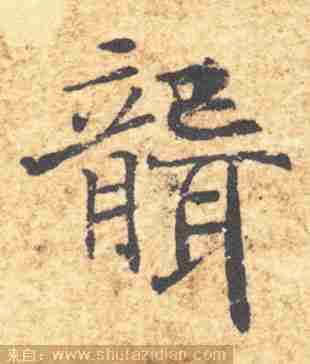 聾
来自:www.shufazidian.com